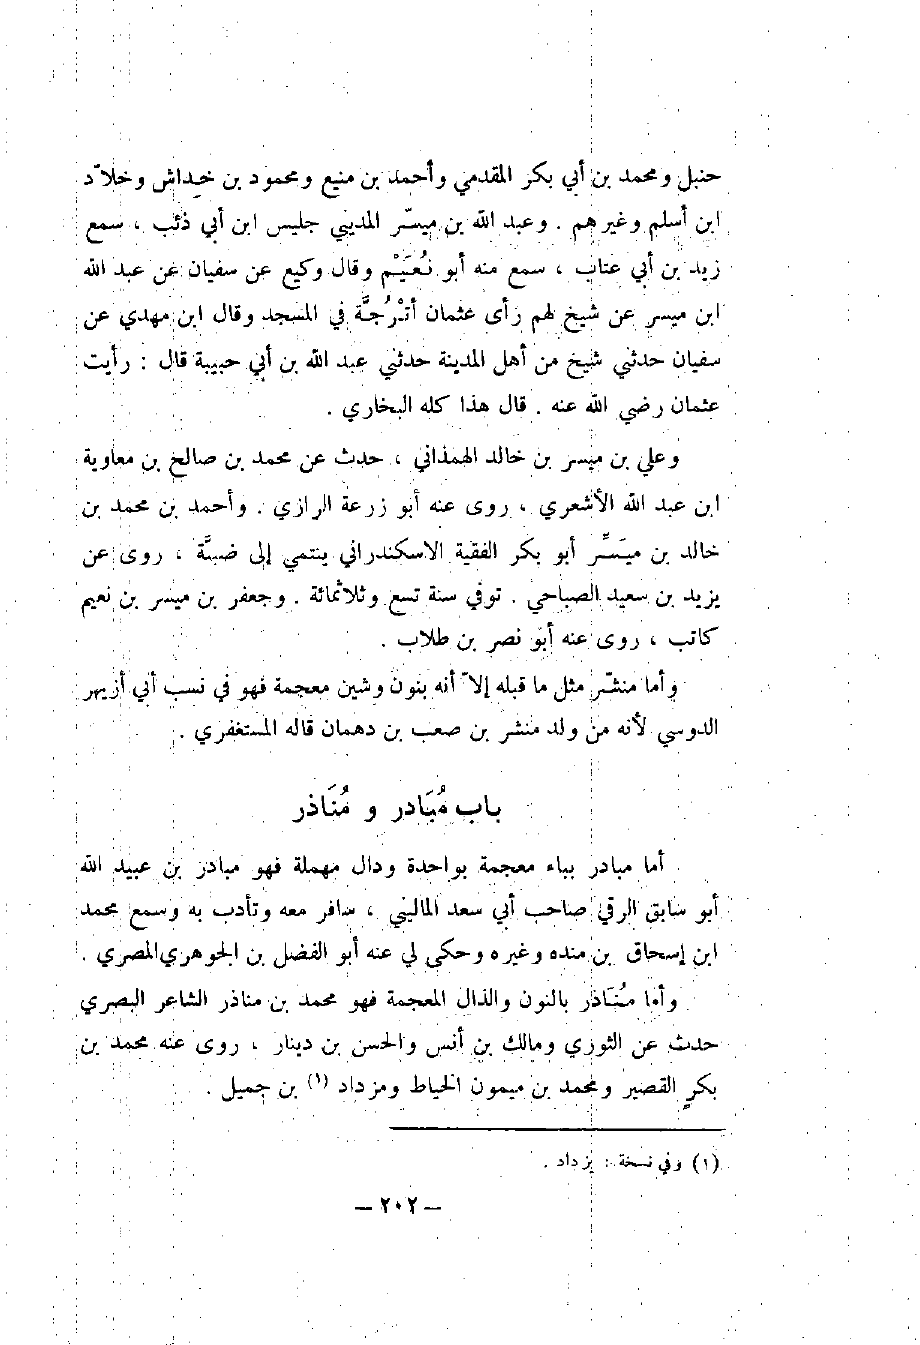 حنبل ومحمد بن أبي بكر المقدمي وأحمد بن منيع ومحمود بن خِداش وخلاّد
ابن أسلم وغيرهم . وعبد الله بن ميسّر المديني جليس ابن أبي ذئب ، سمع
زيد بن أبي عتاب ، سمع منه أبو نُعَيْم وقال وكيع عن سفيان عن عبد الله
ابن ميسر عن شيخ لهم رأى عثمان أتْرُجَّة في المسجد وقال ابن مهدي عن
سفيان حدثني شيخ من أهل المدينة حدثني عبد الله بن أبي حبيبة قال : رأيت
عثمان رضي الله عنه . قال هذا كله البخاري .
وعلي بن ميسر بن خالد الهمذاني ، حدث عن محمد بن صالح بن معاوية
ابن عبد الله الأشعري ، روى عنه أبو زرعة الرازي . وأحمد بن محمد بن
خالد بن ميَسِّر أبو بكر الفقية الاسكندراني ينتمي إلى ضبَّة ، روى عن
يزيد بن سعيد الصباحي . توفي سنة تسع وثلاثمائة . وجعفر بن ميسر بن نعيم
كاتب ، روى عنه أبو نصر بن طلاب .
وأما منشّر مثل ما قبله إلاّ أنه بنون وشين معجمة فهو في نسب أبي أزيهر
الدوسي لأنه من ولد منشر بن صعب بن دهمان قاله المستغفري .
باب مُبَادر و مُنَاذر
أما مبادر بباء معجمة بواحدة ودال مهملة فهو مبادر بن عبيد الله
أبو سابق الرقي صاحب أبي سعد الماليني ، سافر معه وتأدب به وسمع محمد
ابن إسحاق بن منده وغيره وحكى لي عنه أبو الفضل بن الجوهري المصري .
وأما مُنَاذر بالنون والذال المعجمة فهو محمد بن مناذر الشاعر البصري
حدث عن الثوري ومالك بن أنس والحسن بن دينار ، روى عنه محمد بن
بكرٍ القصير ومحمد بن ميمون الخياط ومزداد (١) بن جميل .
(١) وفي نسخة : يزداد .
– ٢٠٢ –